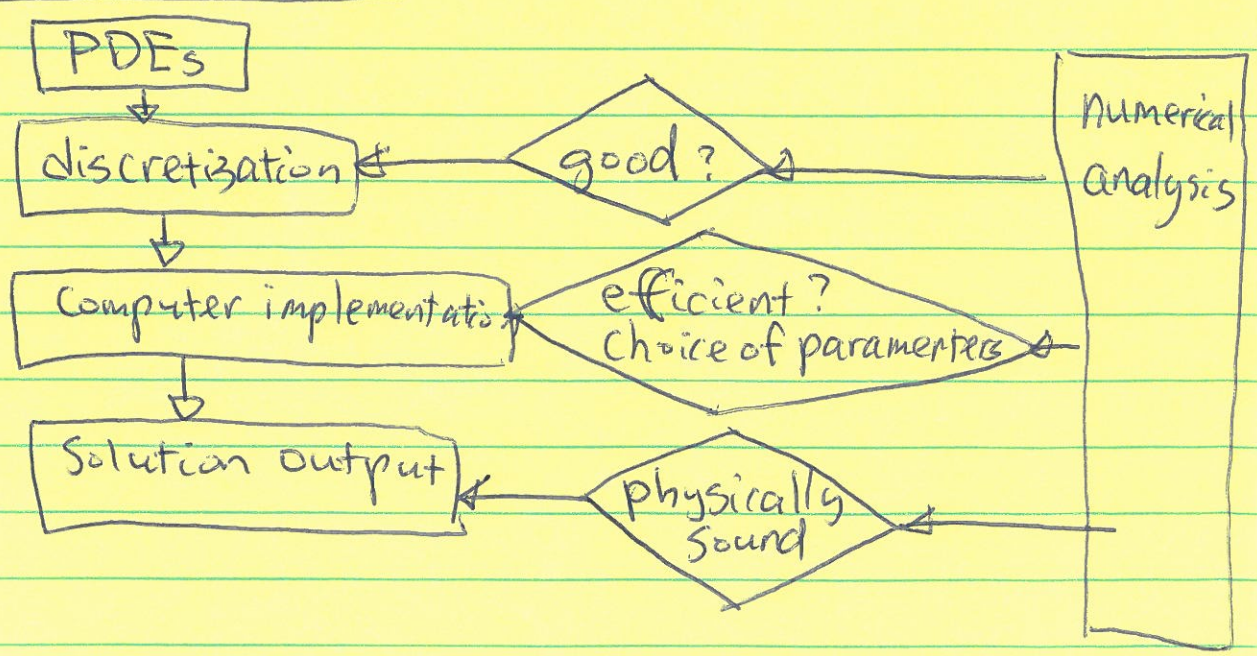 PDEs
discretization
good?
numerical
analysis
Computer implementation
efficient?
Choice of paramerters
Solution output
physically
sound